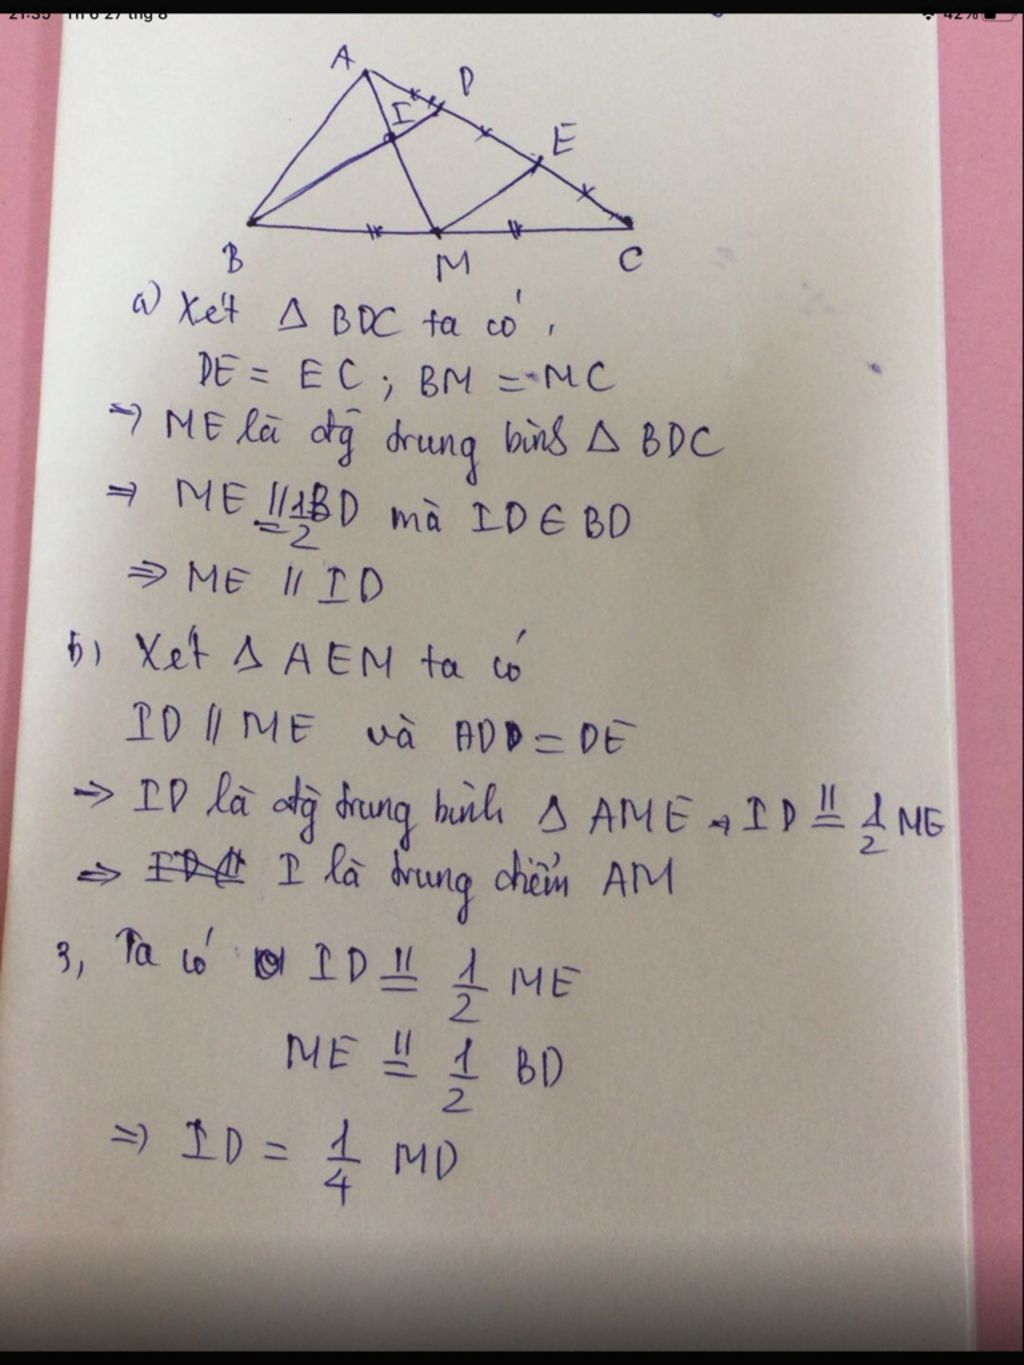 21:35 Th 6 27 thg 8 42%
A D
I E
B M C
a) Xét Δ BDC ta có,
DE = EC ; BM = MC
=> ME là đg trung bình Δ BDC
=> ME // = 1/2 BD mà ID ∈ BD
=> ME // ID
b) Xét Δ AEM ta có
ID // ME và AD = DE
=> ID là đg trung bình Δ AME → ID // = 1/2 ME
=> I là trung điểm AM
3, Ta có ID // = 1/2 ME
ME // = 1/2 BD
=> ID = 1/4 MD